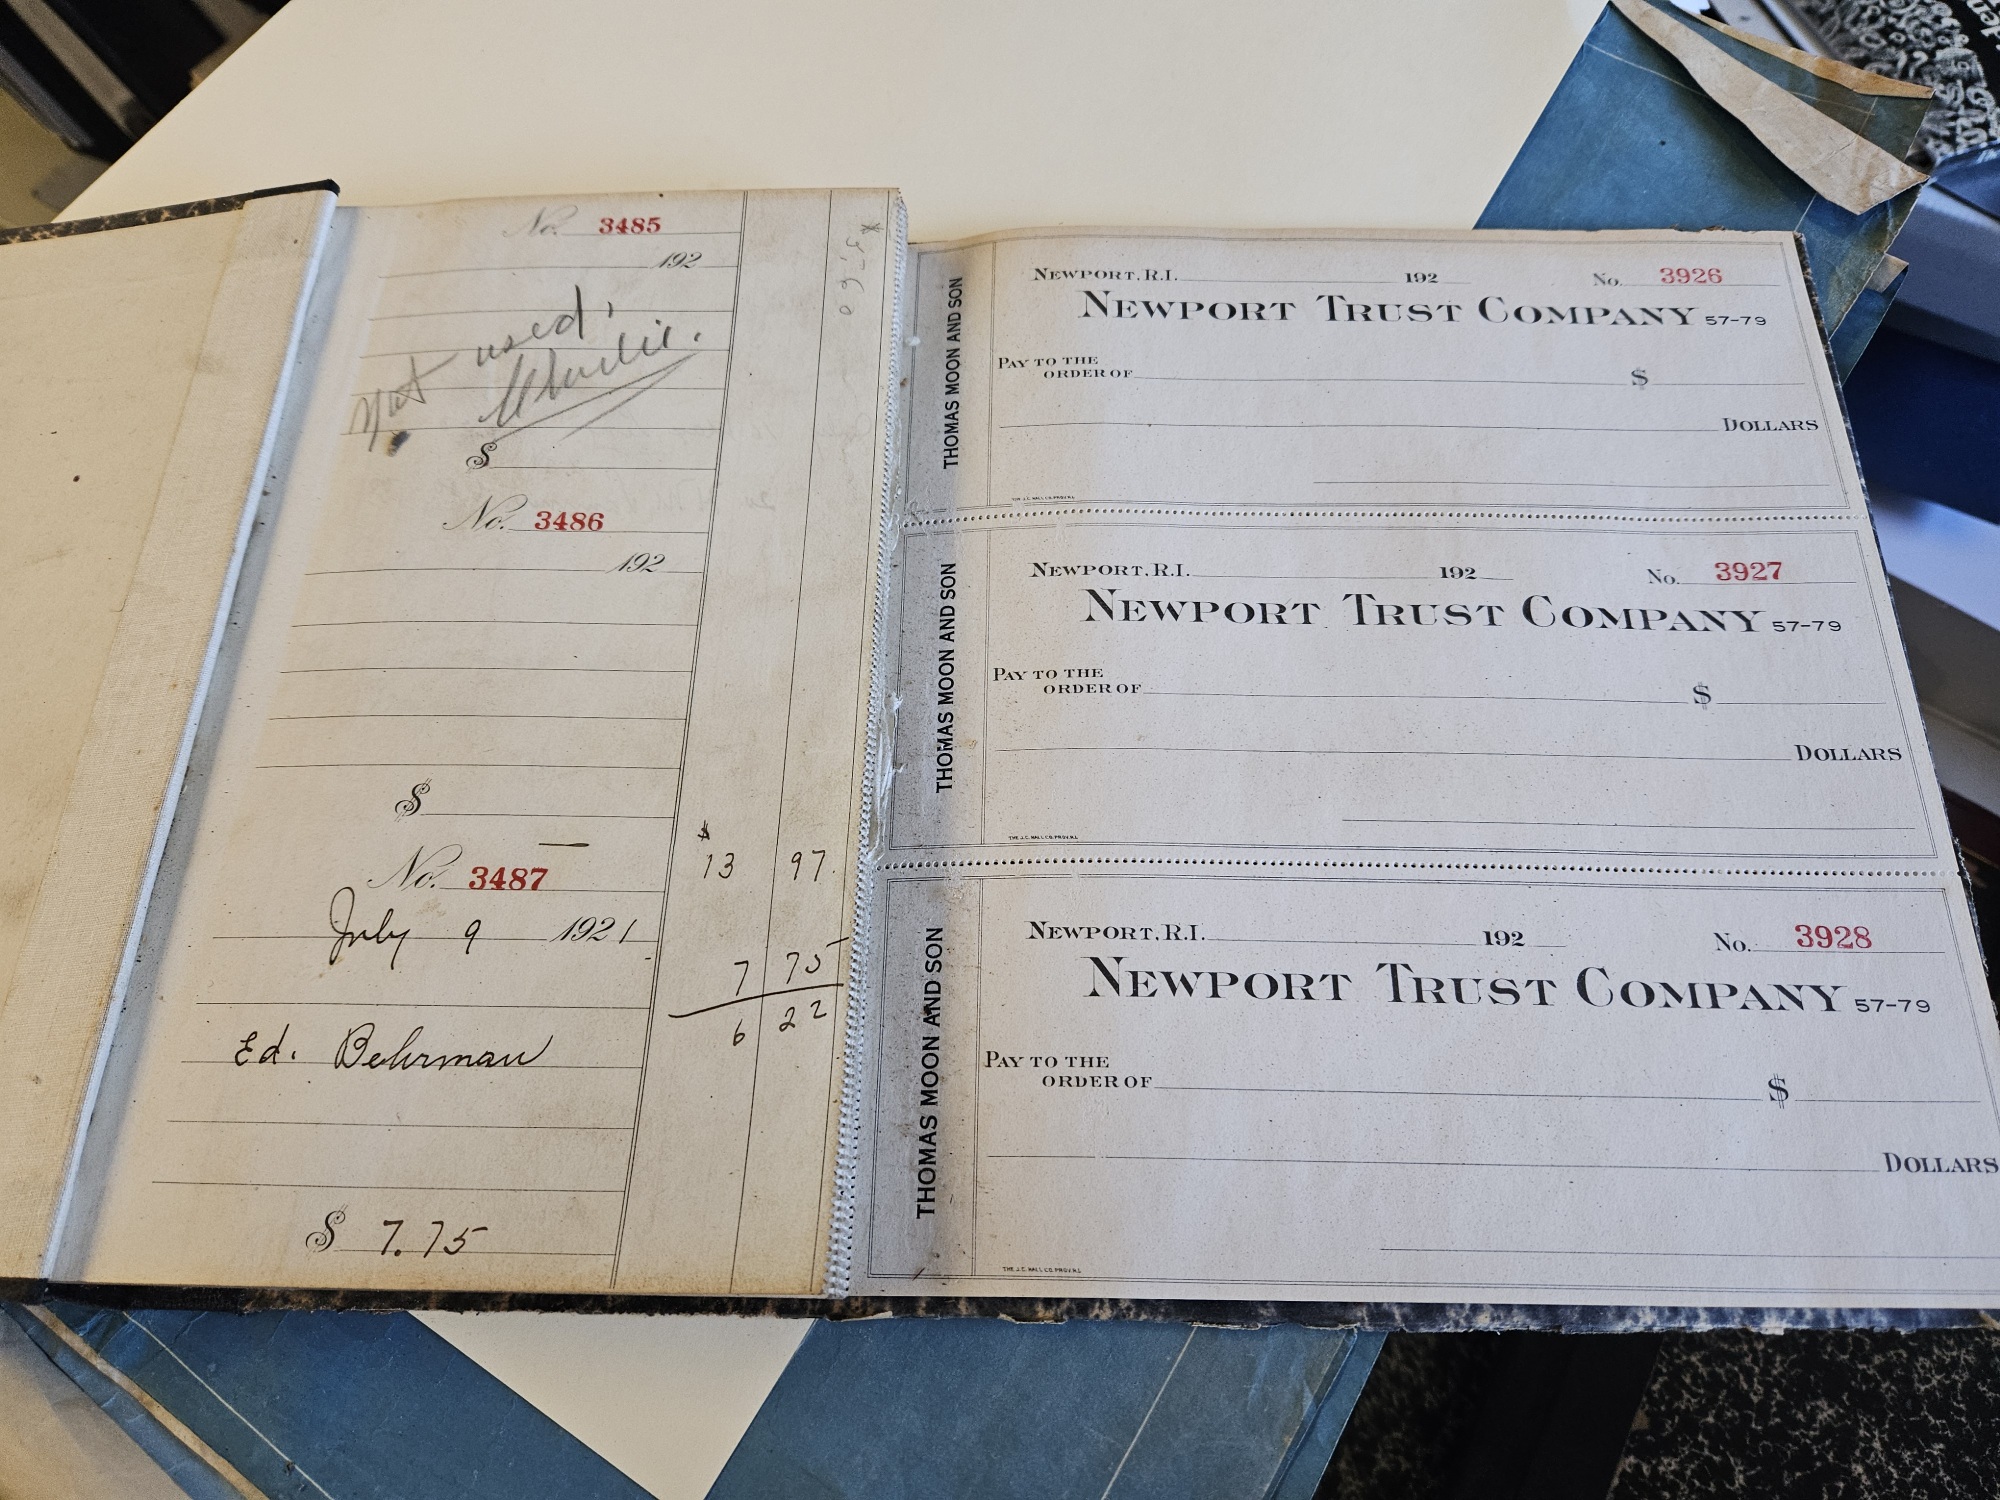 No. 3485
192
Not used.
Charlie.
$
No. 3486
192
$
No. 3487
$
13 97
July 9 1921
7 75
6 22
Ed. Behrman
$ 7.75
THOMAS MOON AND SON
NEWPORT, R.I. 192 No. 3926
NEWPORT TRUST COMPANY 57-79
PAY TO THE
ORDER OF $
DOLLARS
THE J.C. HALL CO. PROV. R.I.
THOMAS MOON AND SON
NEWPORT, R.I. 192 No. 3927
NEWPORT TRUST COMPANY 57-79
PAY TO THE
ORDER OF $
DOLLARS
THE J.C. HALL CO. PROV. R.I.
THOMAS MOON AND SON
NEWPORT, R.I. 192 No. 3928
NEWPORT TRUST COMPANY 57-79
PAY TO THE
ORDER OF $
DOLLARS
THE J.C. HALL CO. PROV. R.I.